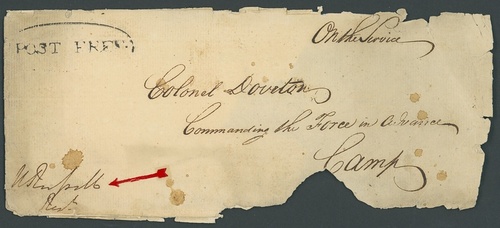 On the Service
POST FREE
Colonel Doveton
Commanding the Force in Advance
Camp
Russell
Rest